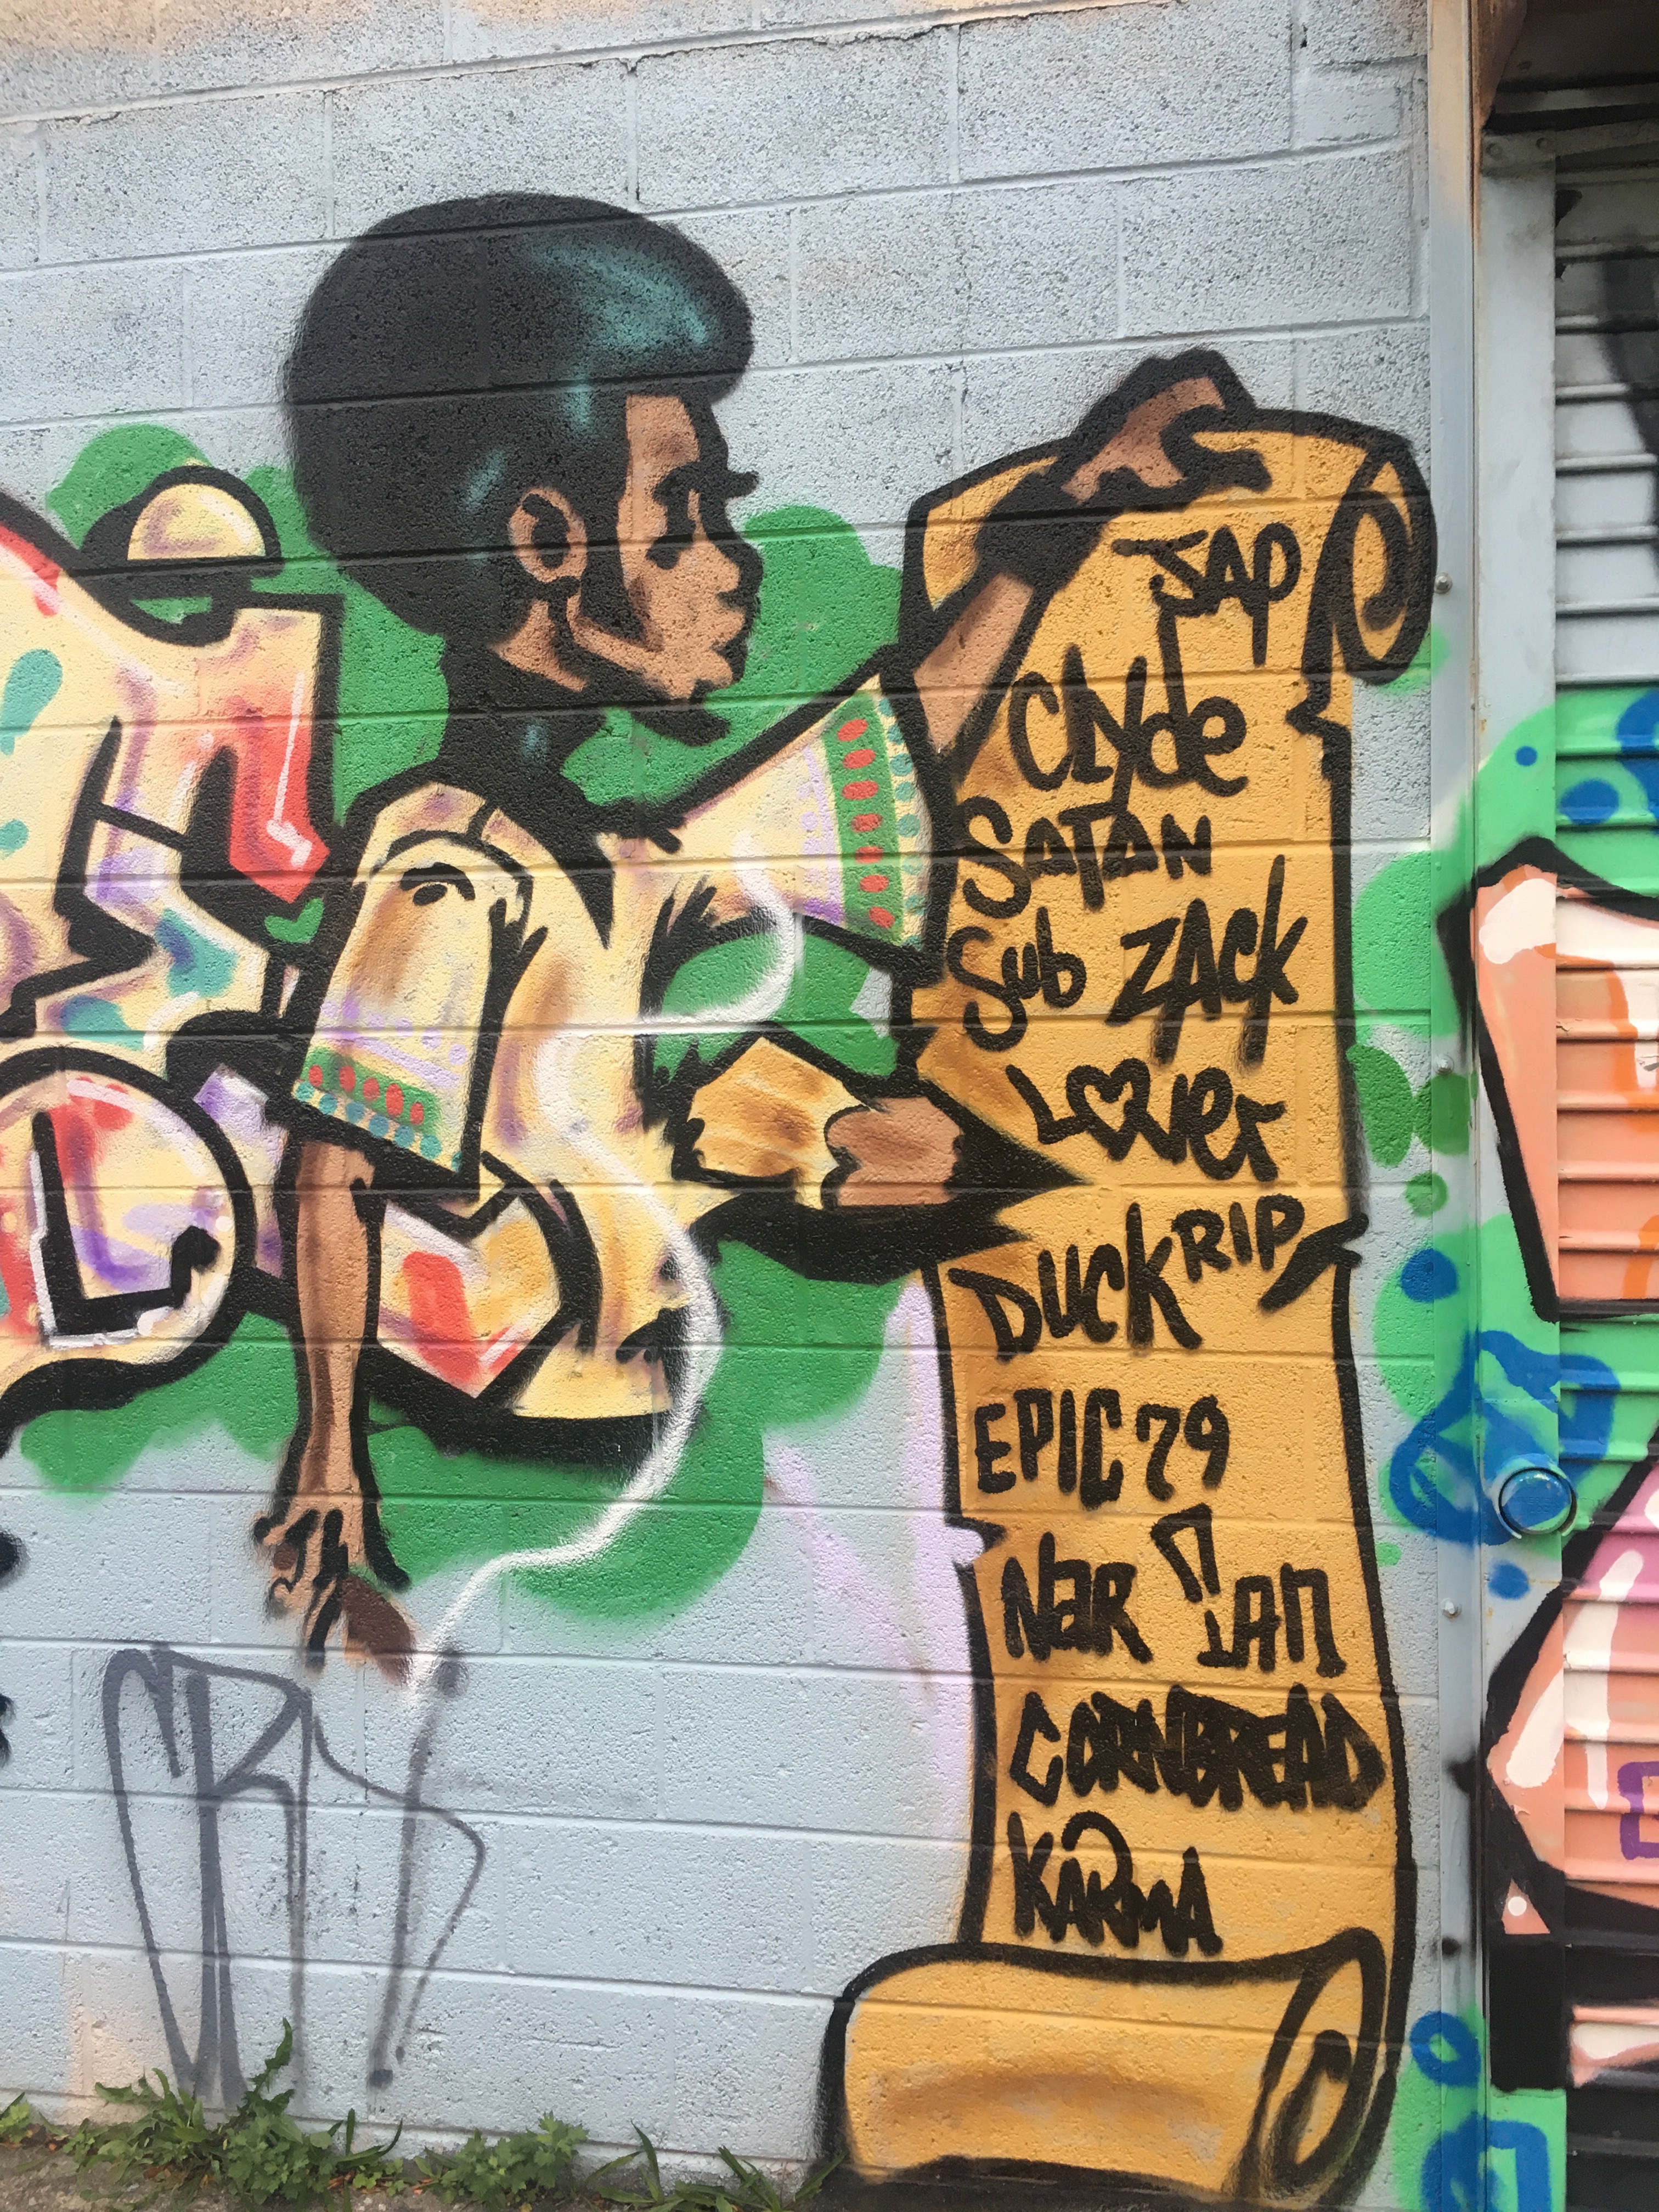 JAP
Clyde
SATAN
Sub ZACK
LOVer
DUCK RIP
EPIC 79
Nar IAN
CORNBREAD
KARMA